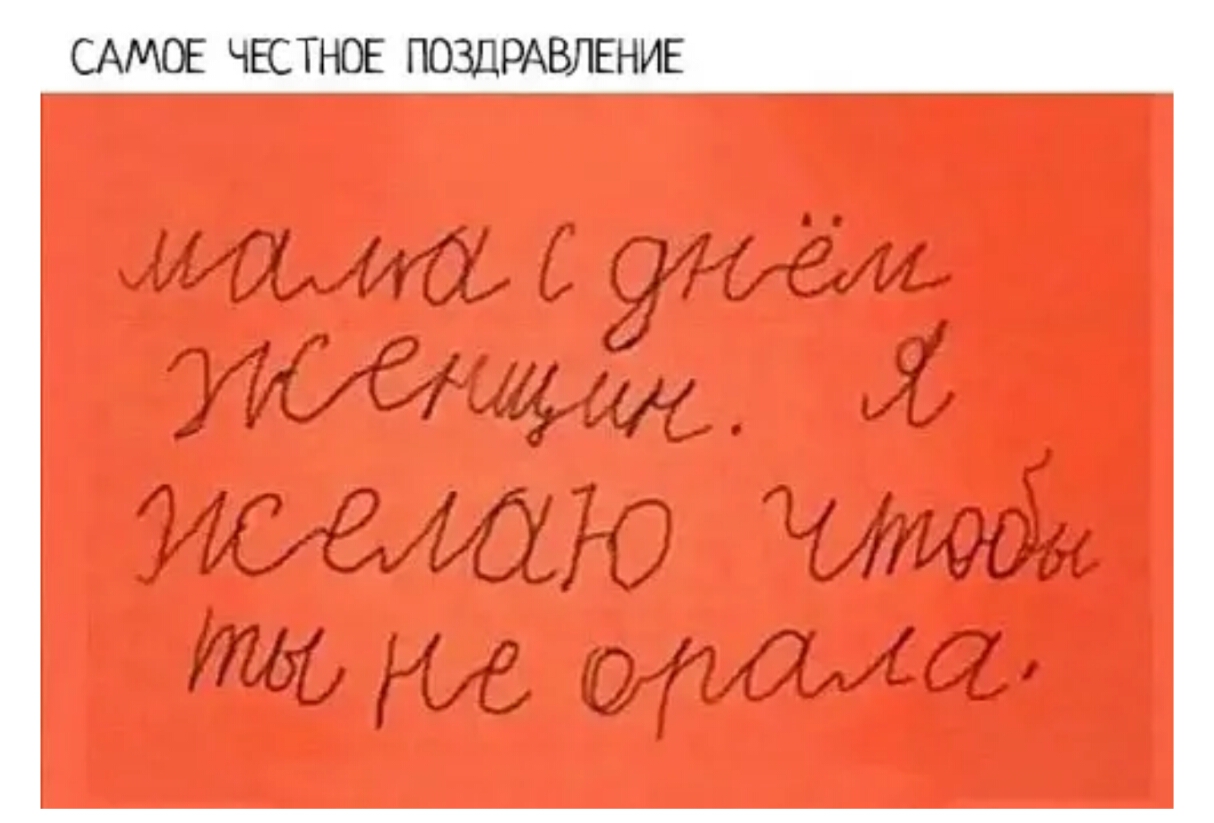 САМОЕ ЧЕСТНОЕ ПОЗДРАВЛЕНИЕ
мама с днём
женщин. я
желаю чтобы
ты не орала.